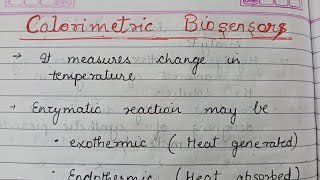 Calorimetric Biosensors
→ It measures change in
temperature
→ Enzymatic reaction may be
• exothermic (Heat generated)
• Endothermic (Heat absorbed)